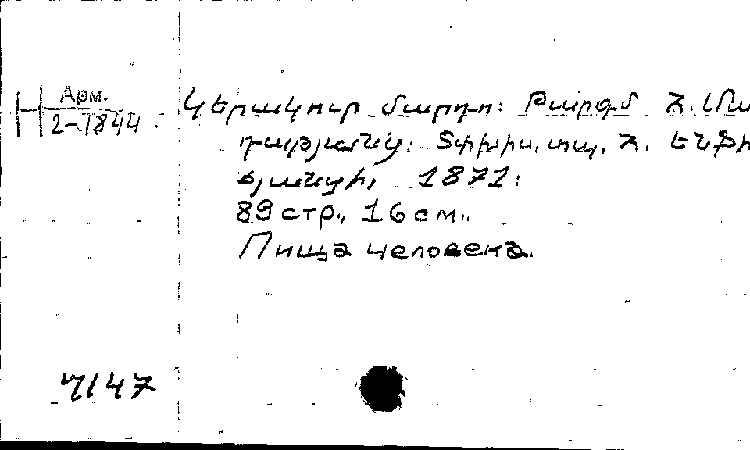 Арм.
2-1844
Կերակուր մարդո: Թարգմ Յ. Մա
տաթյանց: Տփխիս, տպ. Յ. Էնֆի
ճյանցի, 1871:
89 стр., 16 см.
Пища человека.
7147